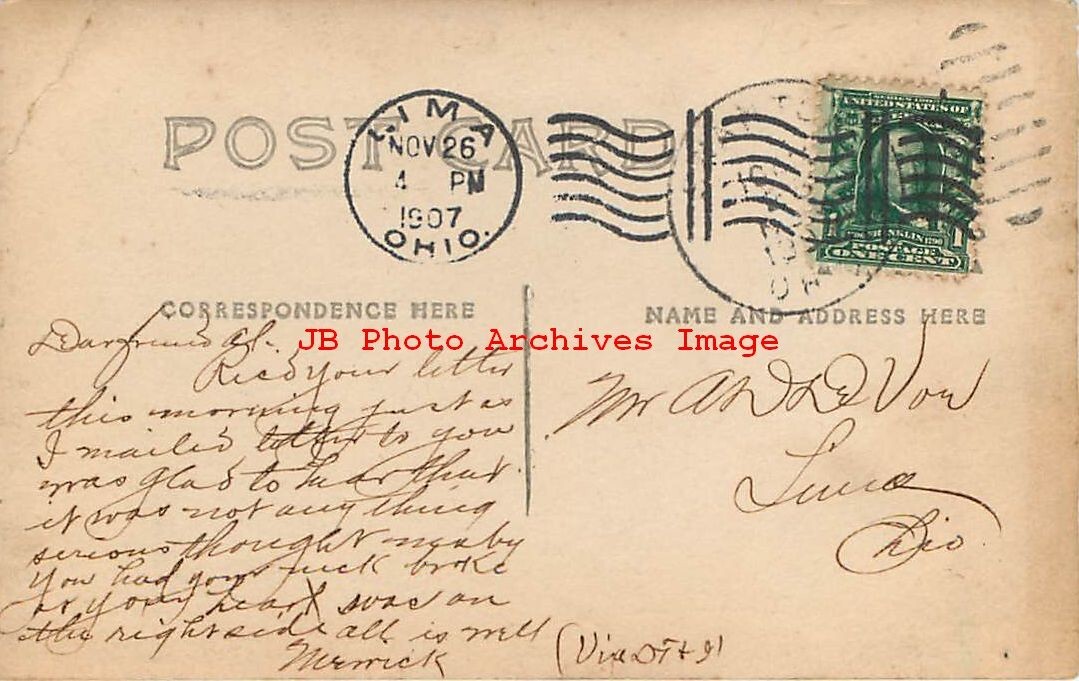 POST CARD
LIMA
NOV 26
4 PM
1907
OHIO.
SERIES 1902
UNITED STATES OF
FRANKLIN 1790
POSTAGE
ONE CENT
CORRESPONDENCE HERE
NAME AND ADDRESS HERE
JB Photo Archives Image
Dear friend Al.
Recd your letter
this morning just as
I mailed letter to you
was glad to hear that
it was not any thing
serious thought maby
you had your neck broke
or your heart was on
the right side all is well
Merrick
Mr A
Lima
Ohio
(Via DT & I)